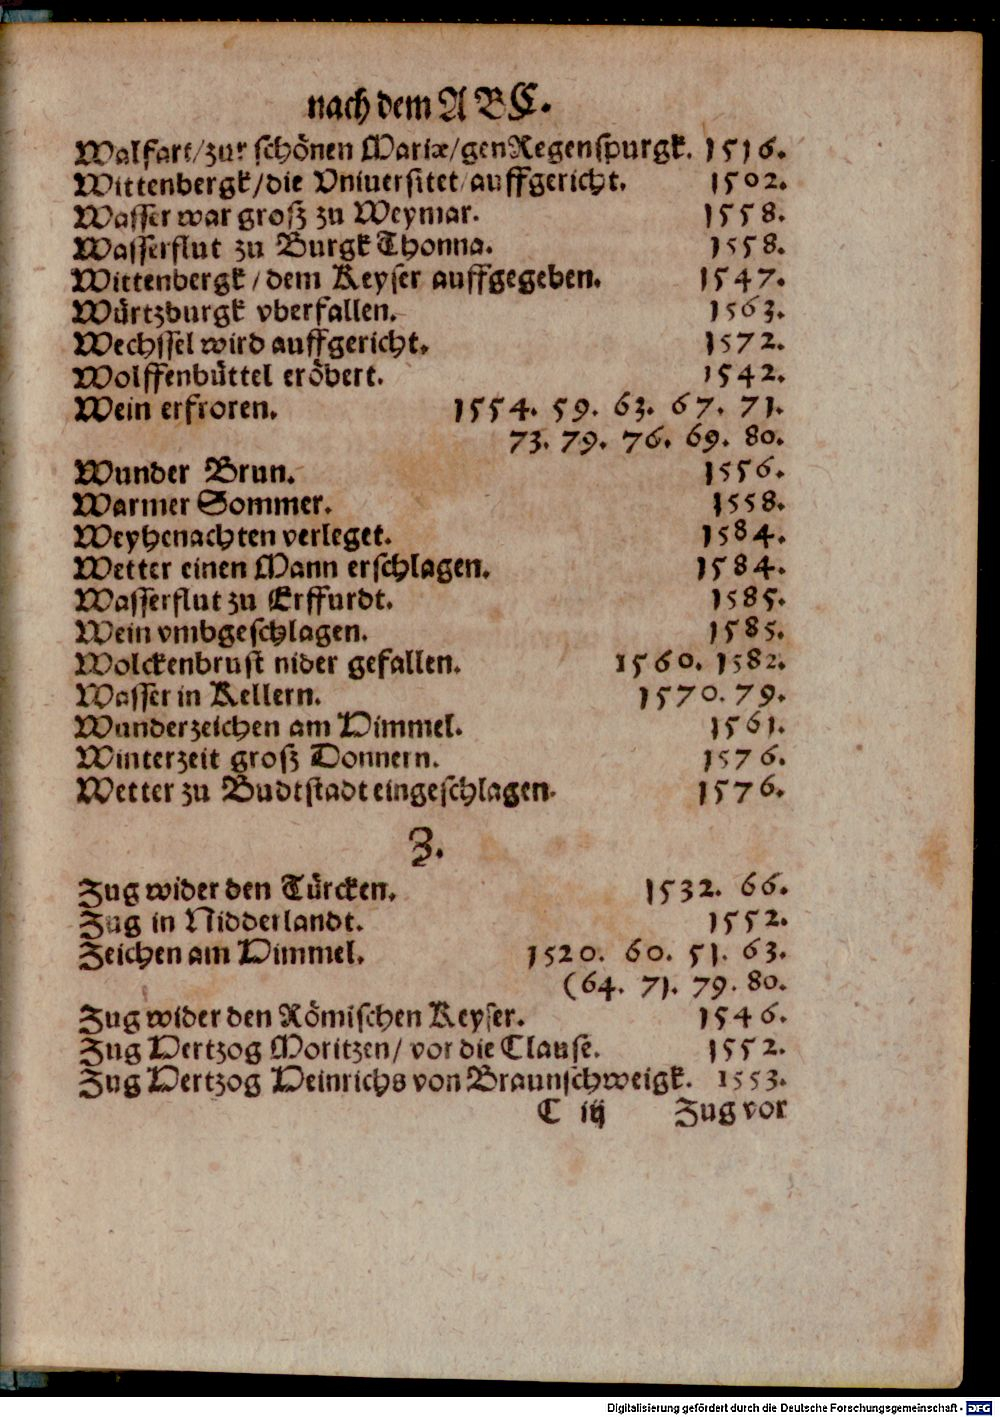 nach dem A B C.
Walfart/zur schönen Mariæ/gen Regenspurgk. 1516.
Wittenbergk/die Vniuersitet/auffgericht. 1502.
Wasser war groß zu Weymar. 1558.
Wasserflut zu Burgk Thonna. 1558.
Wittenbergk/dem Keyser auffgegeben. 1547.
Würtzburgk vberfallen. 1563.
Wechssel wird auffgericht. 1572.
Wolffenbüttel eröbert. 1542.
Wein erfroren. 1554. 59. 63. 67. 71.
73. 79. 76. 69. 80.
Wunder Brun. 1556.
Warmer Sommer. 1558.
Weyhenachten verleget. 1584.
Wetter einen Mann erschlagen. 1584.
Wasserflut zu Erffurdt. 1585.
Wein vmbgeschlagen. 1585.
Wolckenbrust nider gefallen. 1560. 1582.
Wasser in Kellern. 1570. 79.
Wunderzeichen am Himmel. 1561.
Winterzeit groß Donnern. 1576.
Wetter zu Budtstadt eingeschlagen. 1576.
Z.
Zug wider den Türcken. 1532. 66.
Zug in Nidderlandt. 1552.
Zeichen am Himmel. 1520. 60. 51. 63.
(64. 71. 79. 80.
Zug wider den Römischen Keyser. 1546.
Zug Hertzog Moritzen/ vor die Clause. 1552.
Zug Hertzog Heinrichs von Braunschweigk. 1553.
C iij Zug vor
Digitalisierung gefördert durch die Deutsche Forschungsgemeinschaft - DFG